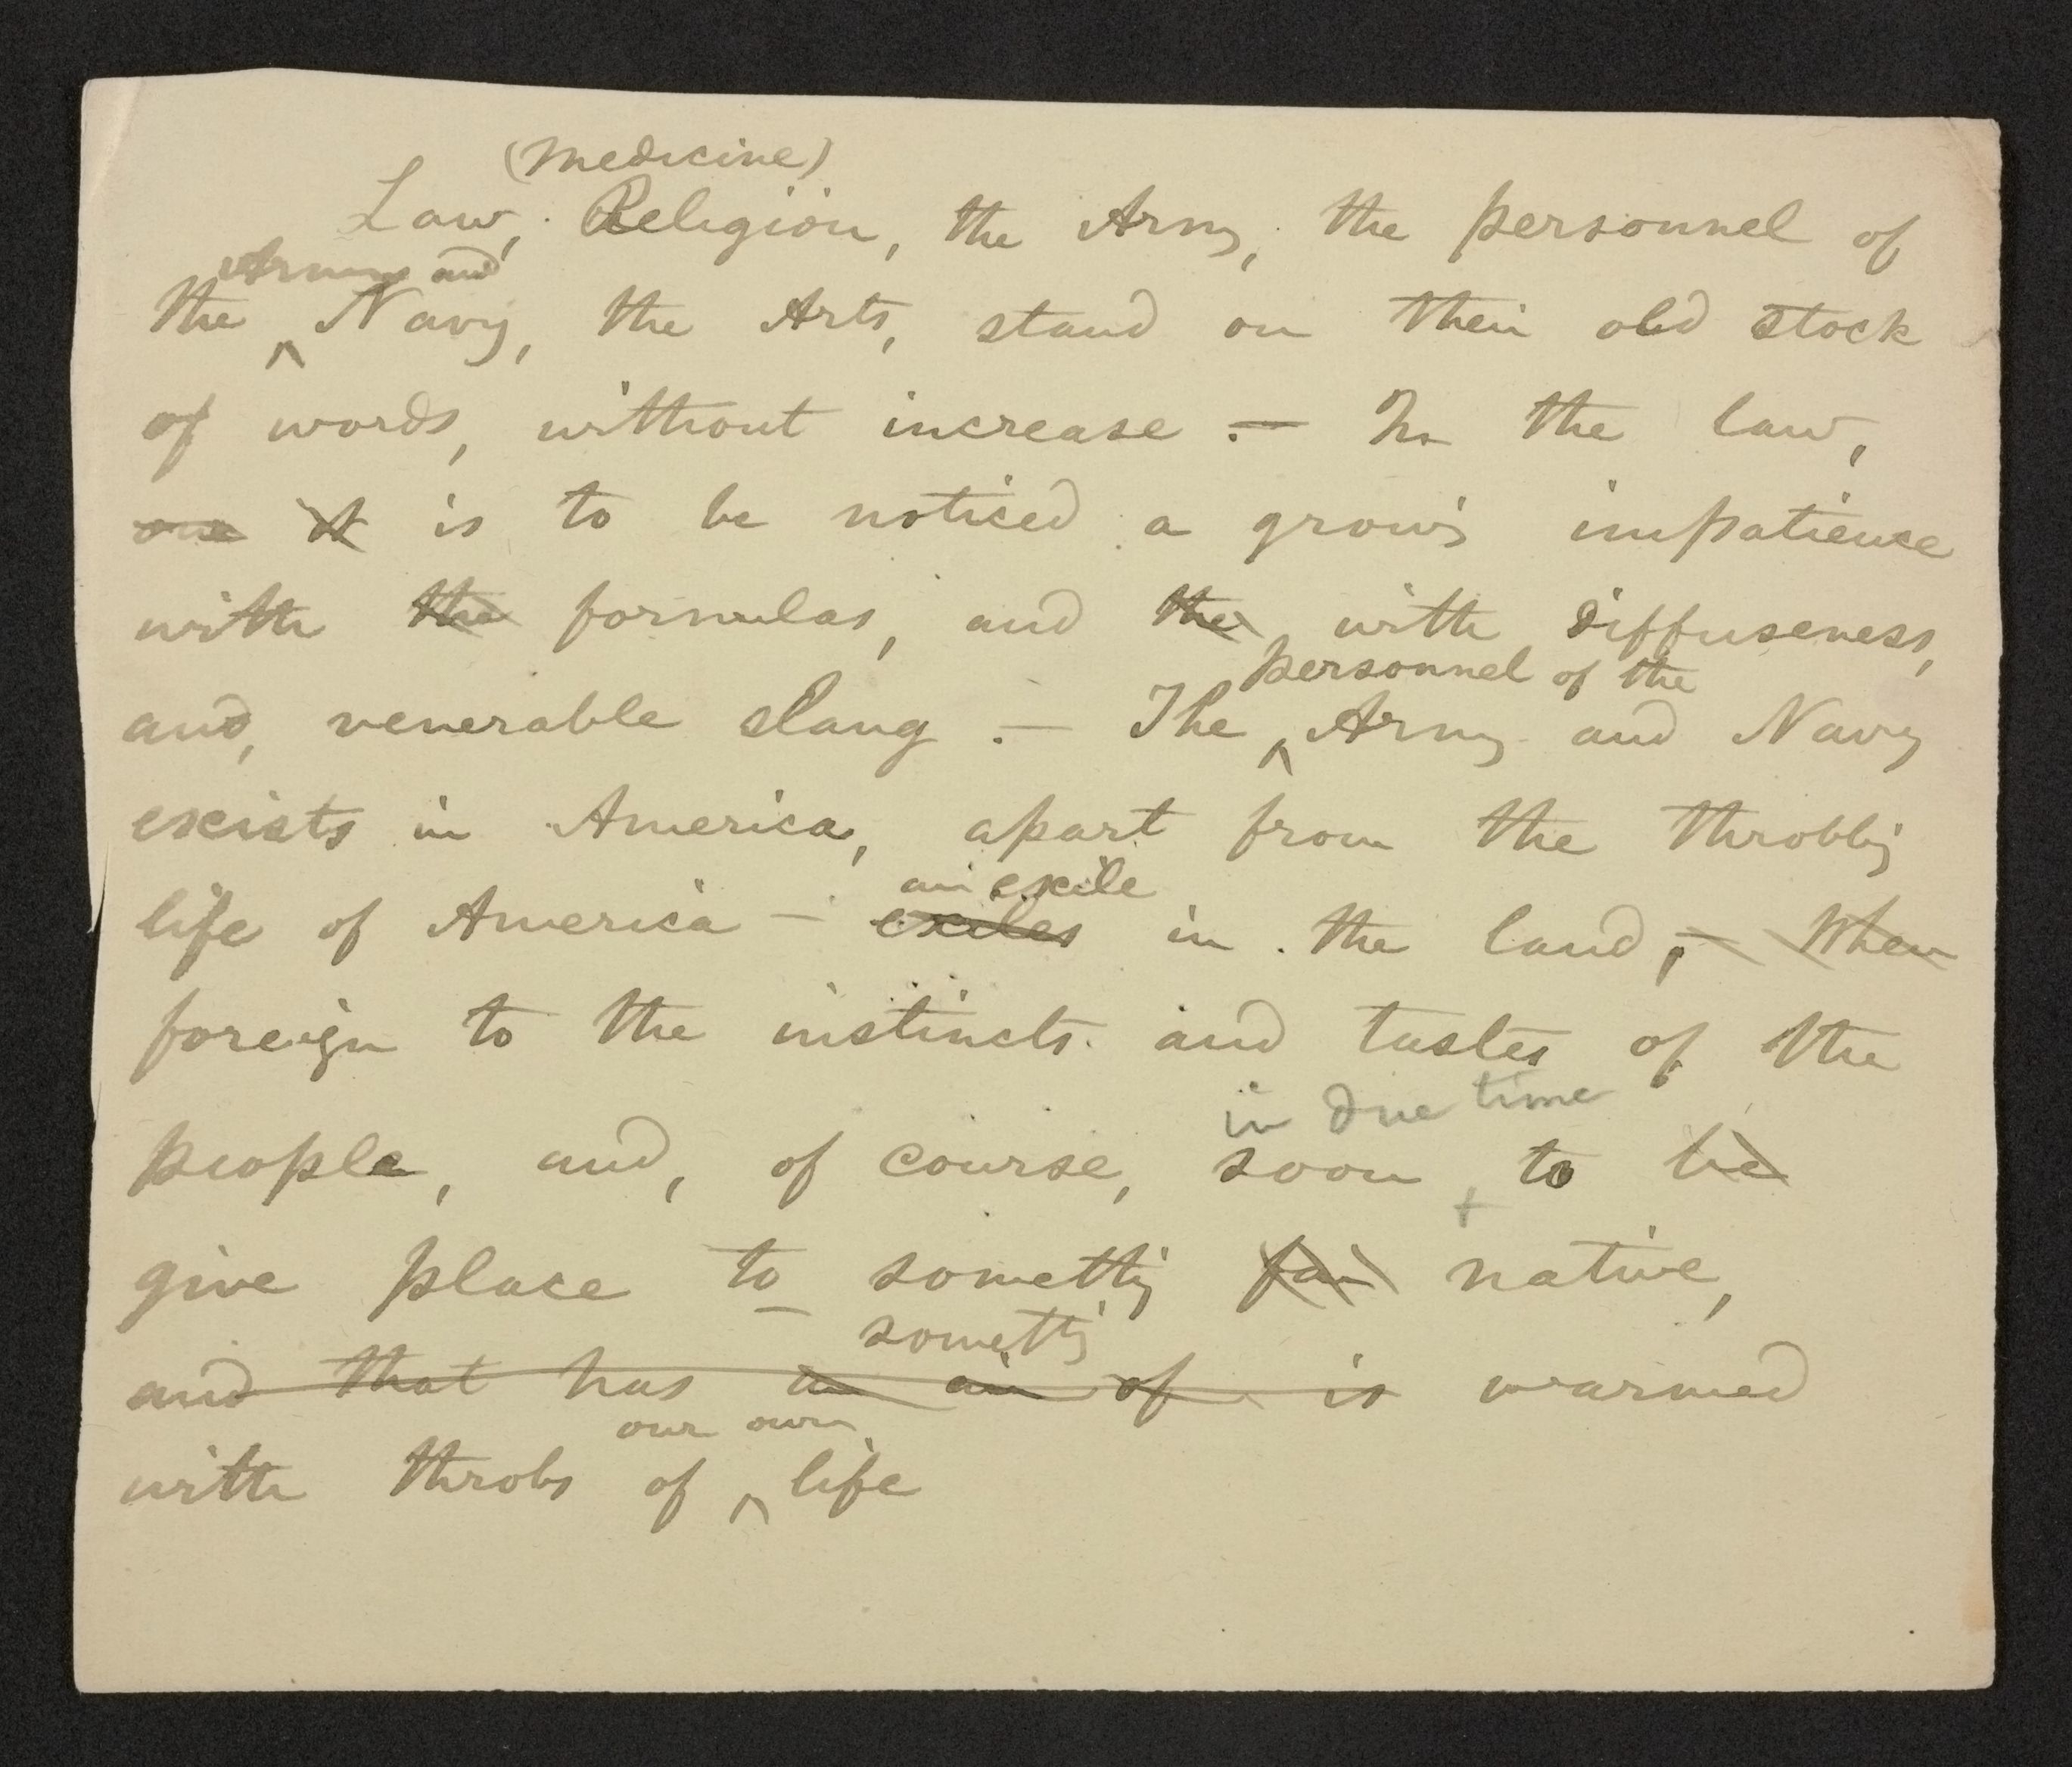 (Medicine)
Law, Religion, the Army, the personnel of
Army and
the ^ Navy, the Arts, stand on their old stock
of words, without increase. — In the law,
one it is to be noticed a growing impatience
with the formulas, and the with diffuseness,
personnel of the
and, venerable slang. — The ^ Army and Navy
exists in America, apart from the throbbing
an exile
life of America — exiles in the land, — When
foreign to the instincts and tastes of the
in due time
people, and, of course, soon to be
give place to something native,
something
and that has an air of is warmed
our own
with throbs of ^ life